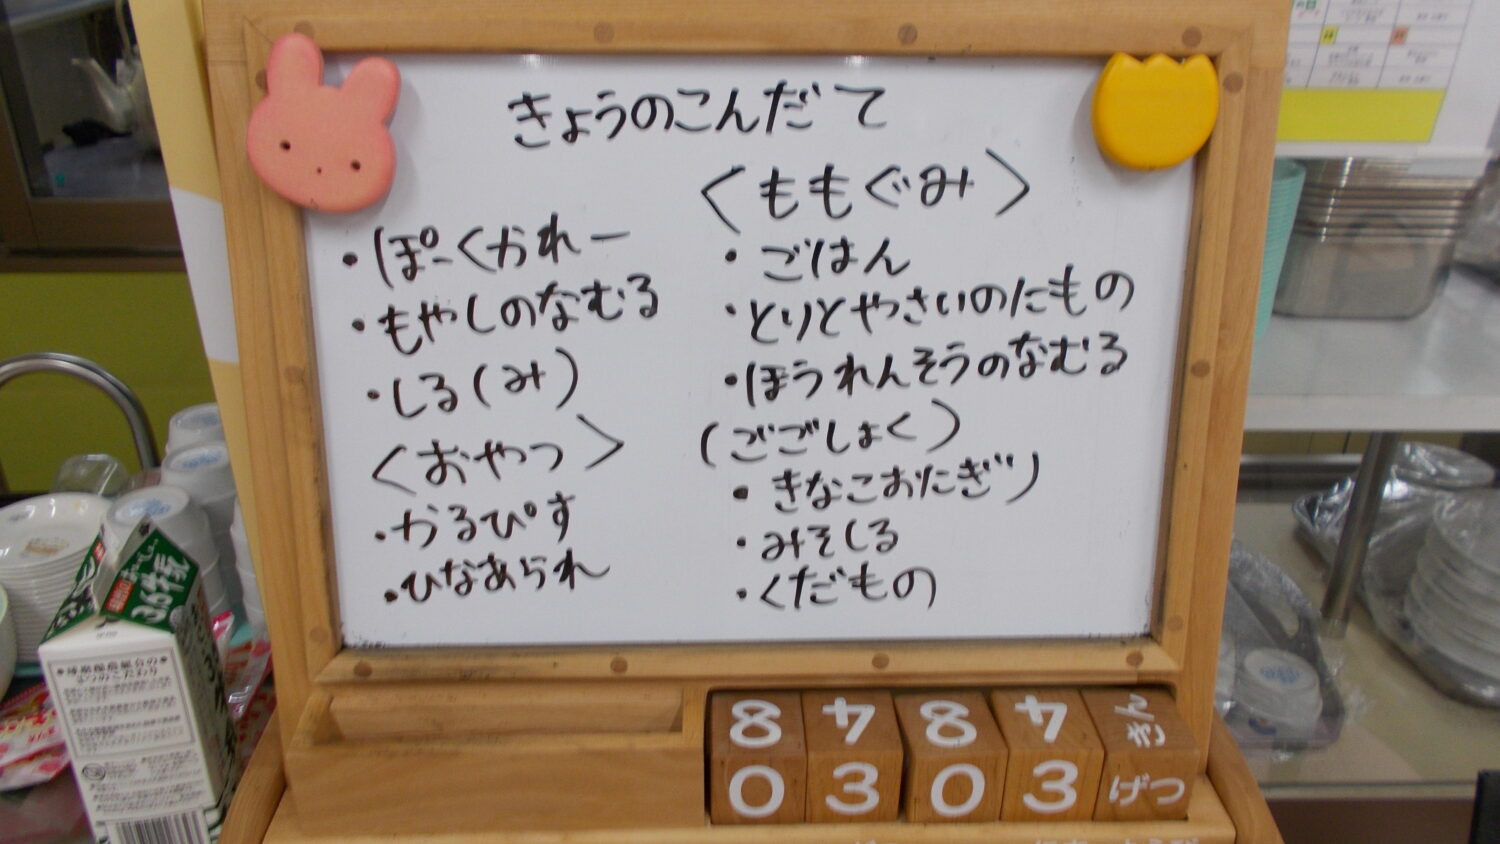 きょうのこんだて
・ぽーくかれー
・もやしのなむる
・しる(み)
〈おやつ〉
・かるぴす
・ひなあられ
〈ももぐみ〉
・ごはん
・とりとやさいのにもの
・ほうれんそうのなむる
(ごごしょく)
・きなこおにぎり
・みそしる
・くだもの
8 4 8 4 きん
0 3 0 3 げつ
3.6牛乳